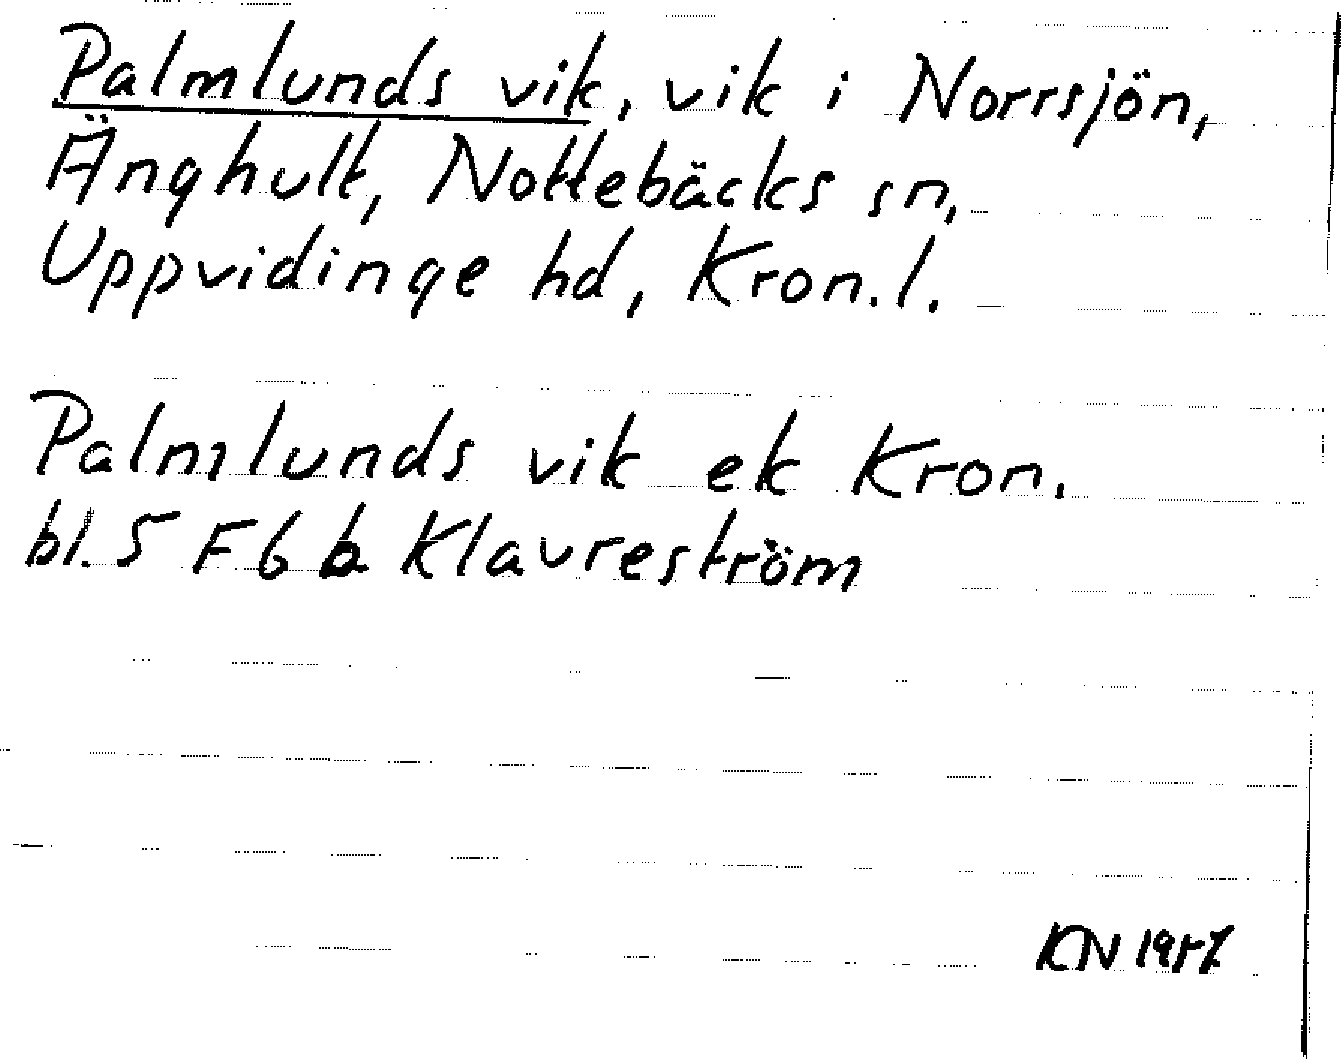 Palmlunds vik, vik i Norrsjön,
Änghult, Nottebäcks sn,
Uppvidinge hd, Kron. l.
Palmlunds vik ek Kron.
bl. 5 F 6 b Klavreström
KN 1957